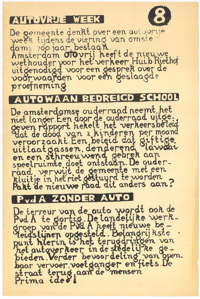 AUTOVRIJE WEEK
8
De gemeente denkt over een autovrije
week tijdens de viering van amster-
dam 700 jaar bestaan.
Amsterdam autovrij heeft de nieuwe
wethouder voor het verkeer Huib Riethof
uitgenodigd voor een gesprek over de
voorwaarden voor een geslaagde
proefneming
AUTOWAAN BEDREIGD SCHOOL
De amsterdamse ouderraad neemt het
niet langer Een door de ouderraad uitge-
geven rapport hekelt het verkeersbeleid
dat de dood van 2 kinderen per maand
veroorzaakt Een beleid dat giftige
uitlaatgassen, denderend lawaai
en een schreeuwend gebrek aan
speelruimte doet ontstaan. De ouder-
raad verwijt de gemeente met een
kluitje in het riet gestuurd te worden.
Pakt de nieuwe raad dit anders aan?
PvdA ZONDER AUTO
De terreur van de auto wordt ook de
PvdA te gortig. De landelijke werk-
groep van de PvdA heeft nieuwe be-
leidslijnen opgesteld. Belangrijkste
punt hierin is het terugdringen van
het autoverkeer in de stedelijke ge-
bieden. Verder bevoordeling van open-
baar vervoer voetganger en fiets De
straat terug aan de mensen
Prima idee!